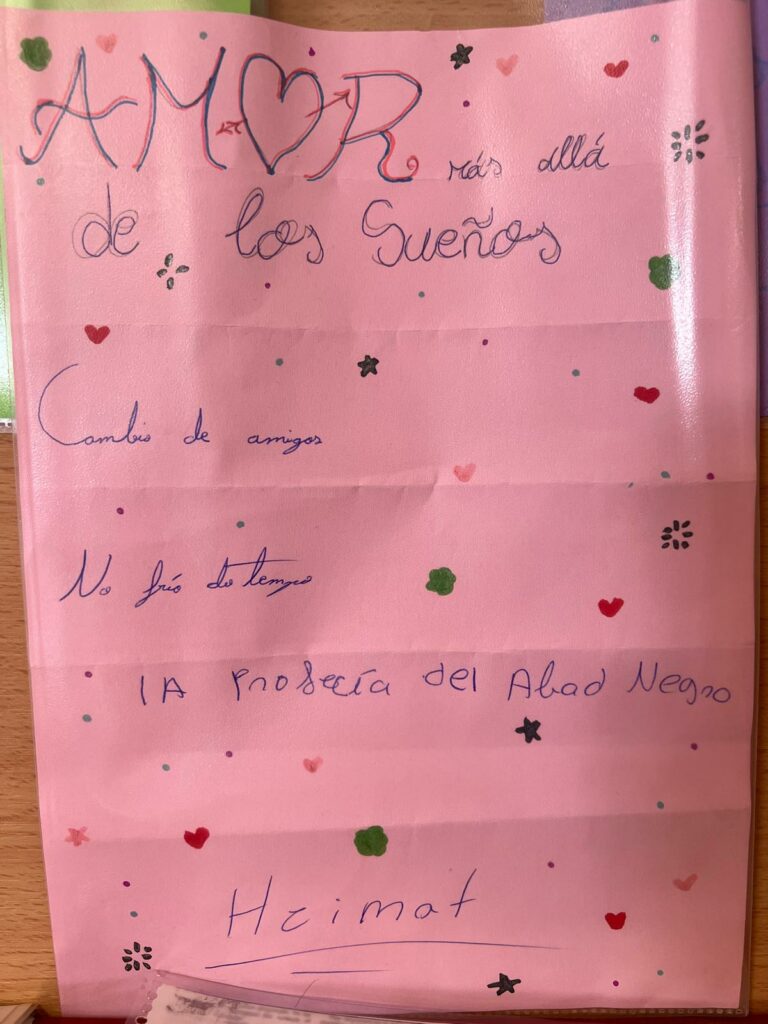 AMOR más allá
de los Sueños
Cambio de amigos
No frío do tempo
lA profecía del Abad Negro
Heimat